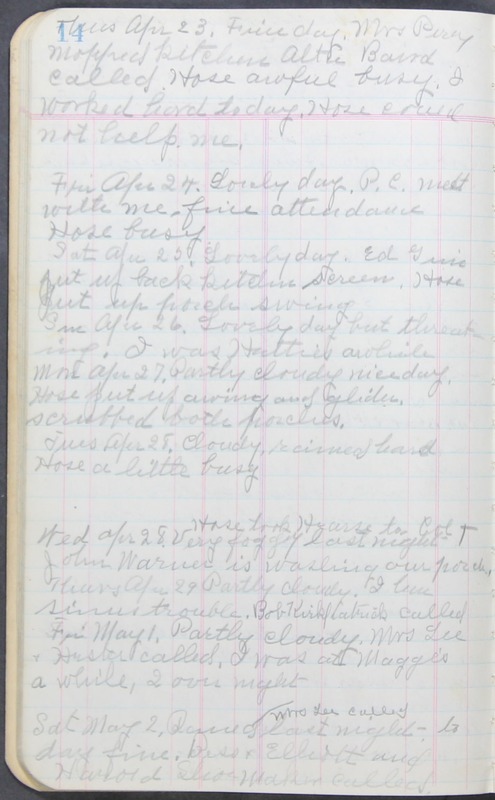 14
Thurs Apr 23. Fine day. Mrs Percy
mopped kitchen Alta Baird
called Hose awful busy. I
worked hard today. Hose could
not help me.
Fri Apr 24. Lovely day. P.C. met
with me, fine attendance
Hose busy
Sat Apr 25. Lovely day. Ed
put up back kitchen screen. Hose
put up porch swing
Sun Apr 26. Lovely day but threat-
ing. I was Hatties awhile
Mon Apr 27. Partly cloudy nice day.
Hose put up awning and glider.
scrubbed both porches.
Tues Apr 28. Cloudy, rained hard
Hose a little busy
Hose took Hearse to Col
Wed Apr 28. Very foggy last night
John Warner is washing our porch.
Thurs Apr 29 Partly cloudy. I have
sinus trouble. Bob Kirkpatrick called
Fri May 1. Partly cloudy. Mrs Lee
+ Hester called. I was at Maggie's
a while, 2 over night
Mrs Lee called
Sat May 2, Rained last night - to
day fine. Elliott and
Harold called.